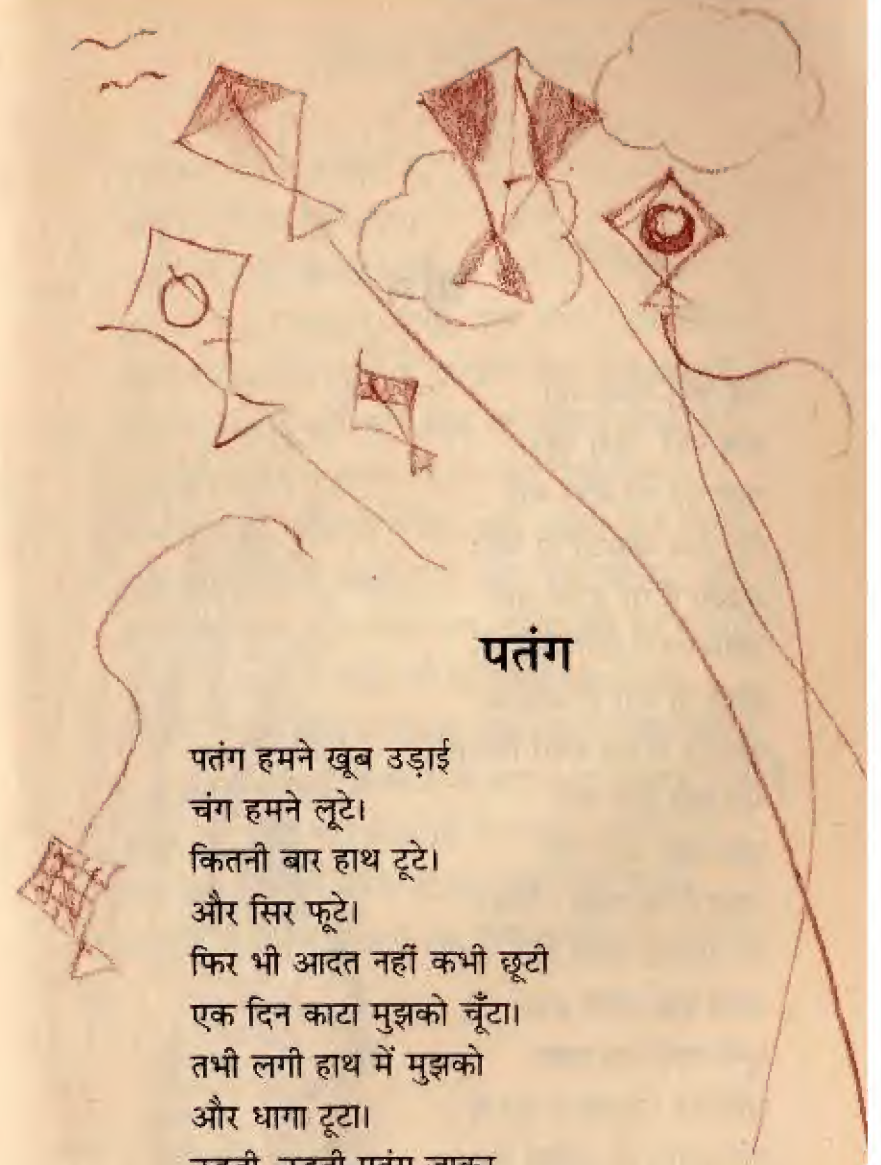 पतंग
पतंग हमने खूब उड़ाई
चंग हमने लूटे।
कितनी बार हाथ टूटे।
और सिर फूटे।
फिर भी आदत नहीं कभी छूटी
एक दिन काटा मुझको चूँटा।
तभी लगी हाथ में मुझको
और धागा टूटा।